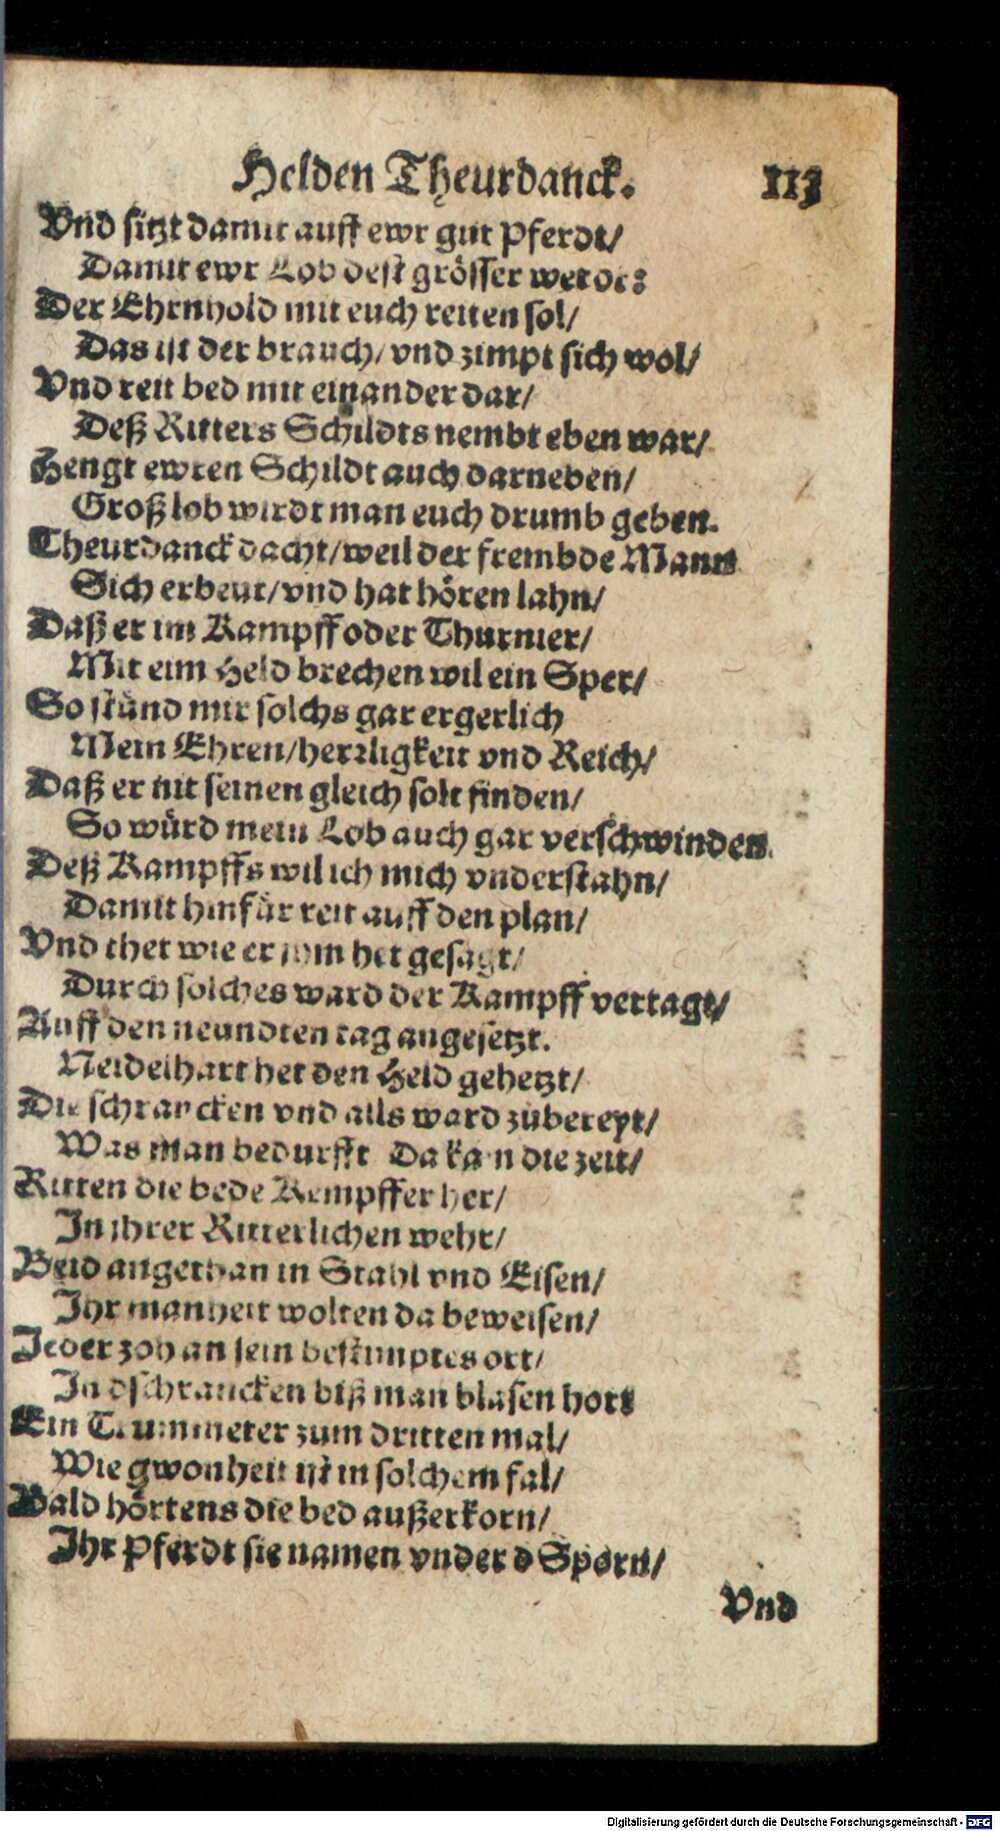 Helden Theurdanck. 113
Vnd sitzt damit auff ewr gut Pferdt/
Damit ewr Lob dest grösser werde:
Der Ehrnhold mit euch reiten sol/
Das ist der brauch/ vnd zimpt sich wol/
Vnd reit bed mit einander dar/
Deß Ritters Schildts nembt eben war/
Hengt ewren Schildt auch darneben/
Groß lob wirdt man euch drumb geben.
Theurdanck dacht/ weil der frembde Mann
Sich erbeut/ vnd hat hören lahn/
Daß er im Kampff oder Thurnier/
Mit eim Held brechen wil ein Sper/
So stünd mir solchs gar ergerlich
Mein Ehren/ herrligkeit vnd Reich/
Daß er nit seinen gleich solt finden/
So würd mein Lob auch gar verschwinden.
Deß Kampffs wil ich mich vnderstahn/
Damit hinfür reit auff den plan/
Vnd thet wie er jhm het gesagt/
Durch solches ward der Kampff vertagt/
Auff den neundten tag angesetzt.
Neidelhart het den Held gehetzt/
Die schrancken vnd alls ward zubereyt/
Was man bedurfft Da kam die zeit/
Ritten die bede Kempffer her/
In jhrer Ritterlichen wehr/
Beid angethan in Stahl vnd Eisen/
Ihr manheit wolten da beweisen/
Jeder zoh an sein bestimptes ort/
In dschrancken biß man blasen hort
Ein Trummeter zum dritten mal/
Wie gwonheit ist in solchem fal/
Bald hörtens die bed außerkorn/
Ihr Pferdt sie namen vnder d Sporn/
Vnd
Digitalisierung gefördert durch die Deutsche Forschungsgemeinschaft - DFG